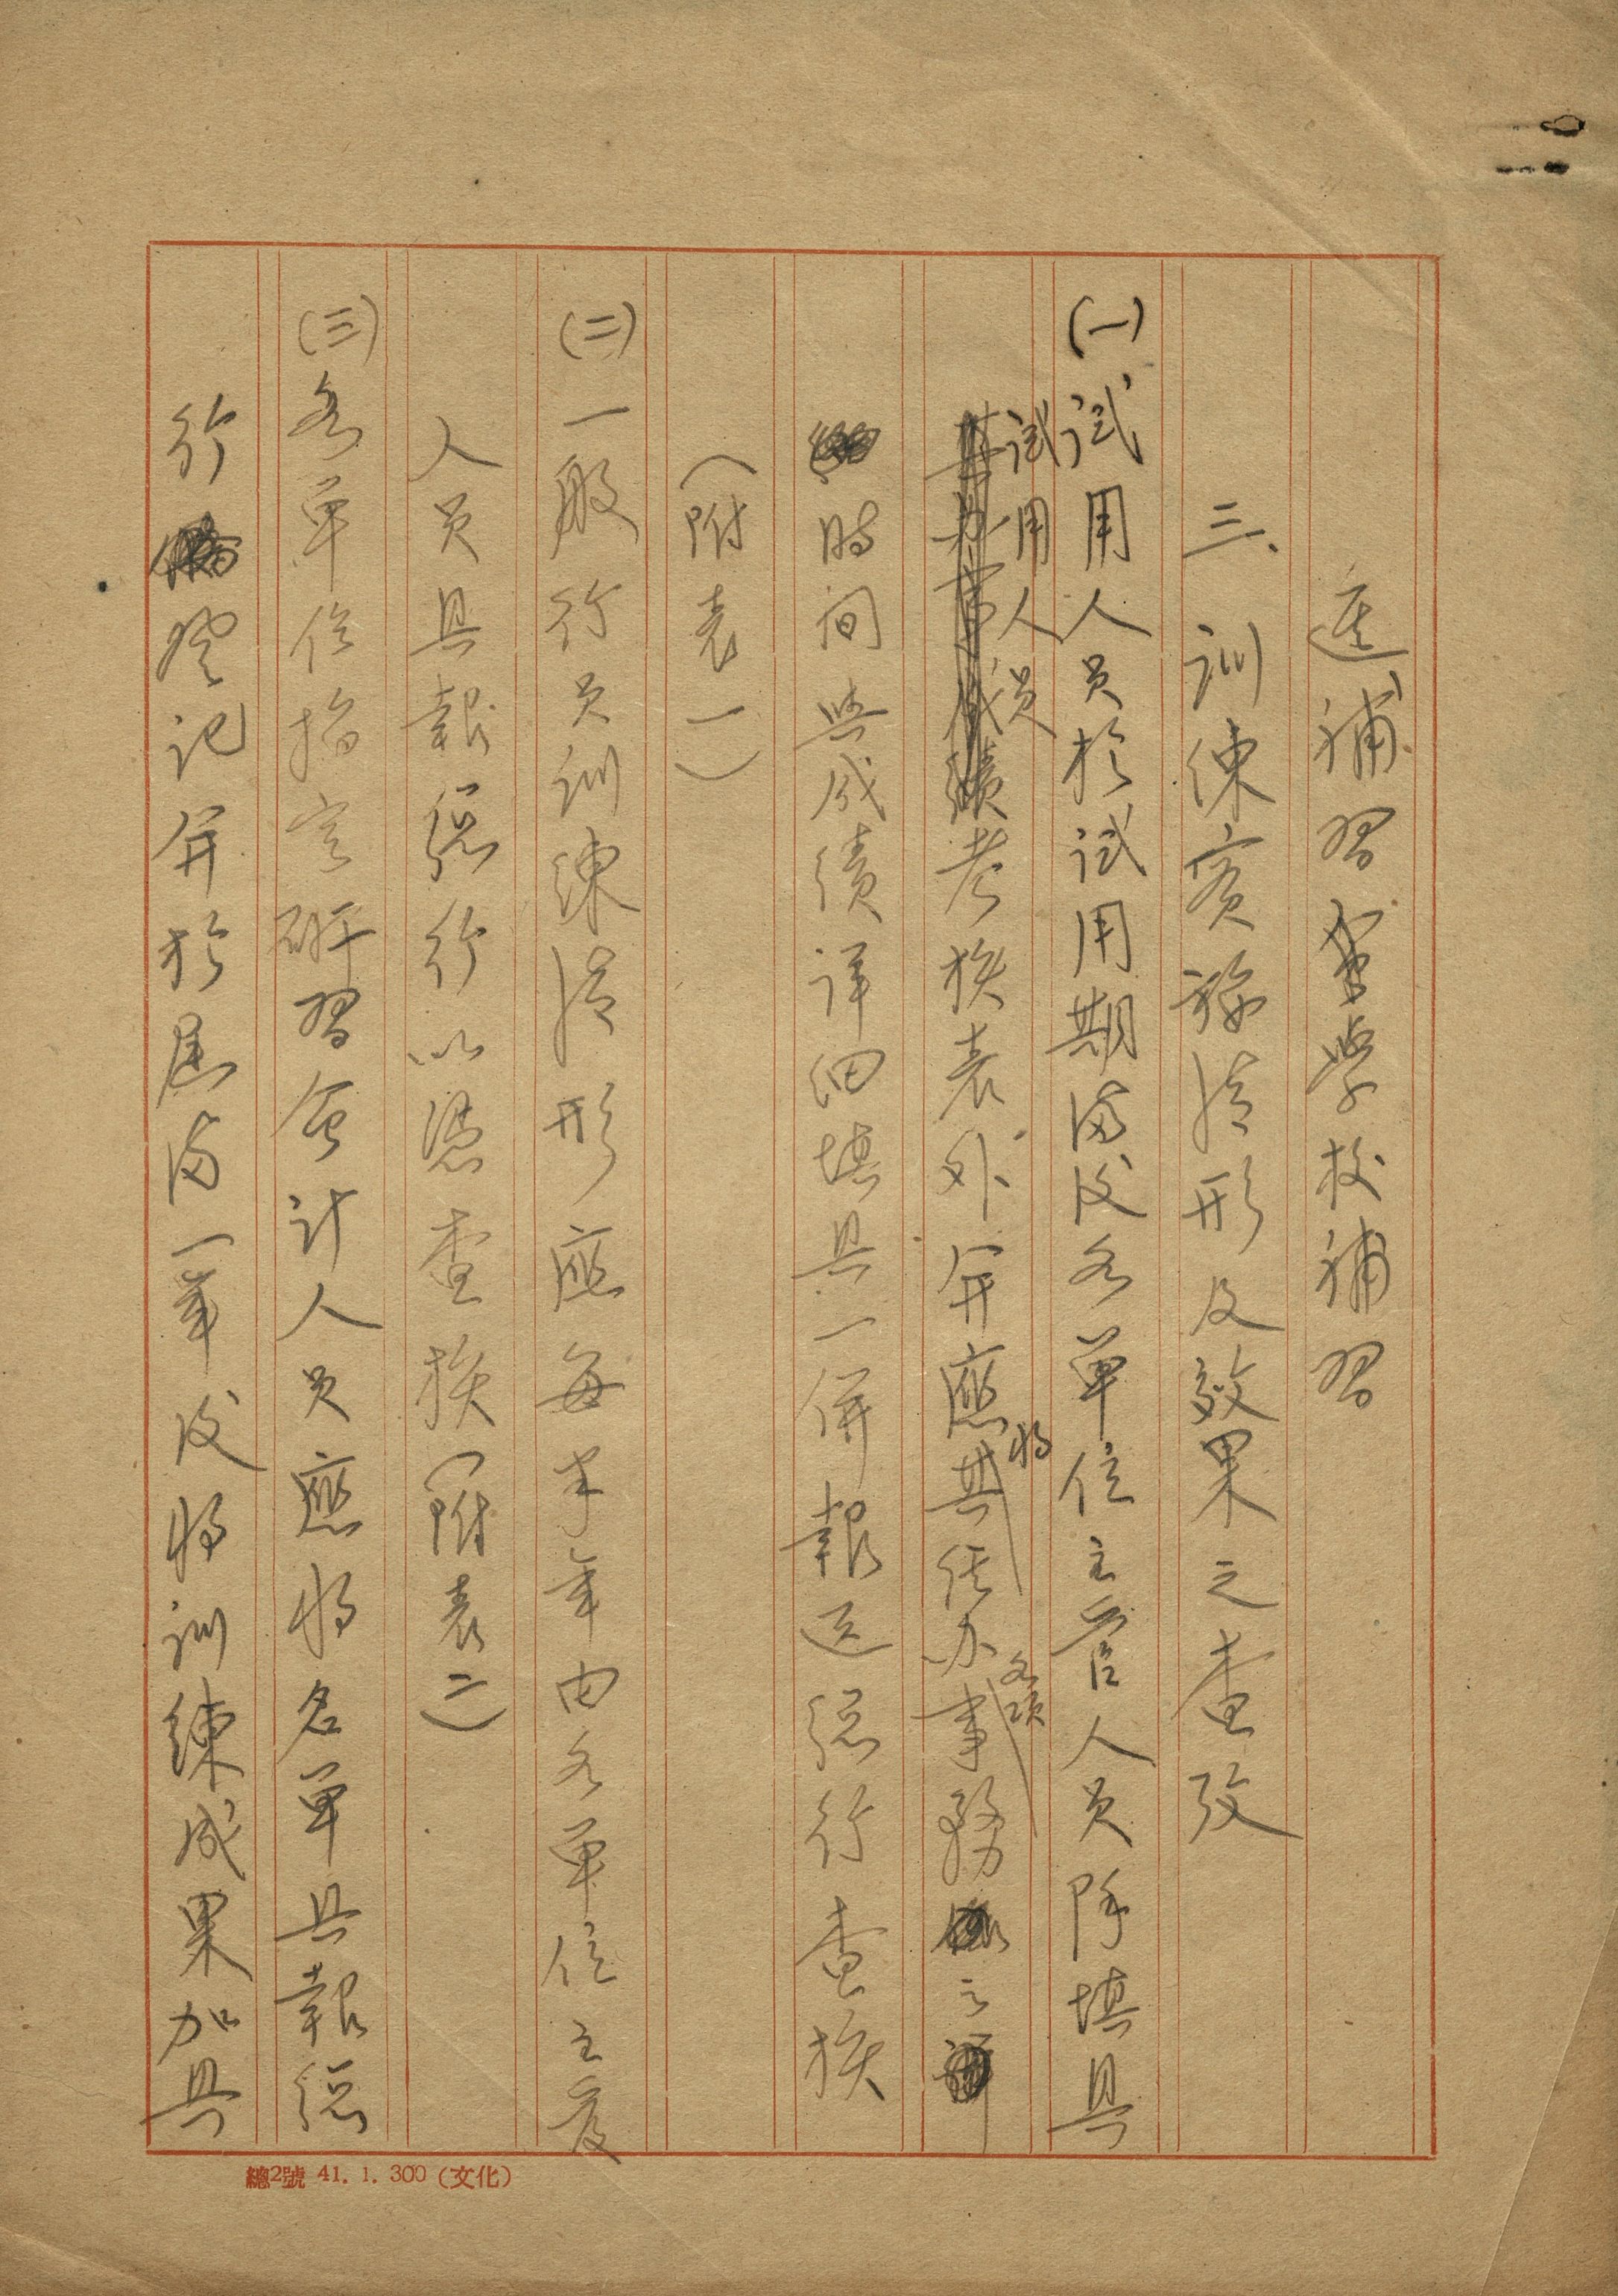 進補習學校補習
三、訓練實施情形及效果之查攷
(一)試用人員於試用期滿後各單位主管人員除填具
試用人員考核表外并應將其經办各項事務之
時间與成績詳细填具一併報送總行查核
(附表一)
(二)一般行員訓練情形應每半年由各單位主管
人員具報總行以憑查核(附表二)
(三)各單位指定研習會计人員應将名單具報總
行登记併於屆滿一年後将訓練成果加具
總2號 41. 1. 300 (文化)